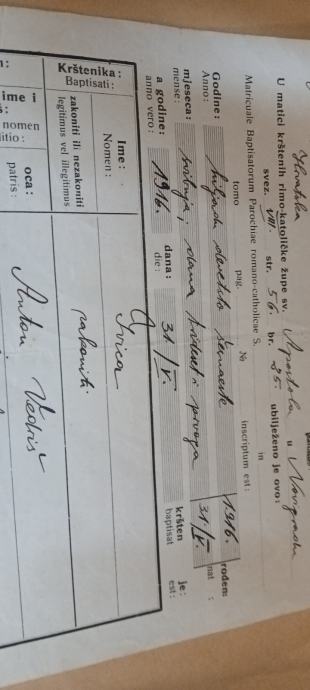 Hrvatska
U matici krštenih rimo-katoličke župe sv. Apostola u Novigradu
svez. VIII. str. 56. br. 25. ubilježeno je ovo:
Matriculae Baptisatorum Parochiae romano-catholicae S. in
tomo pag. № inscriptum est:
Godine: hiljadu devetsto šesnaeste 1916. rođen:
Anno: nat :
mjeseca: svibnja, dana trideset i prvoga 31./V.
mense:
a godine: 1916. dana: 31./V. kršten je:
anno vero: die: baptisat est:
Krštenika: Ime: Ivica
Baptisati: Nomen:
zakoniti ili nezakoniti zakonit.
legitimus vel illegitimus
ime i oca: Anton
nomen patris: